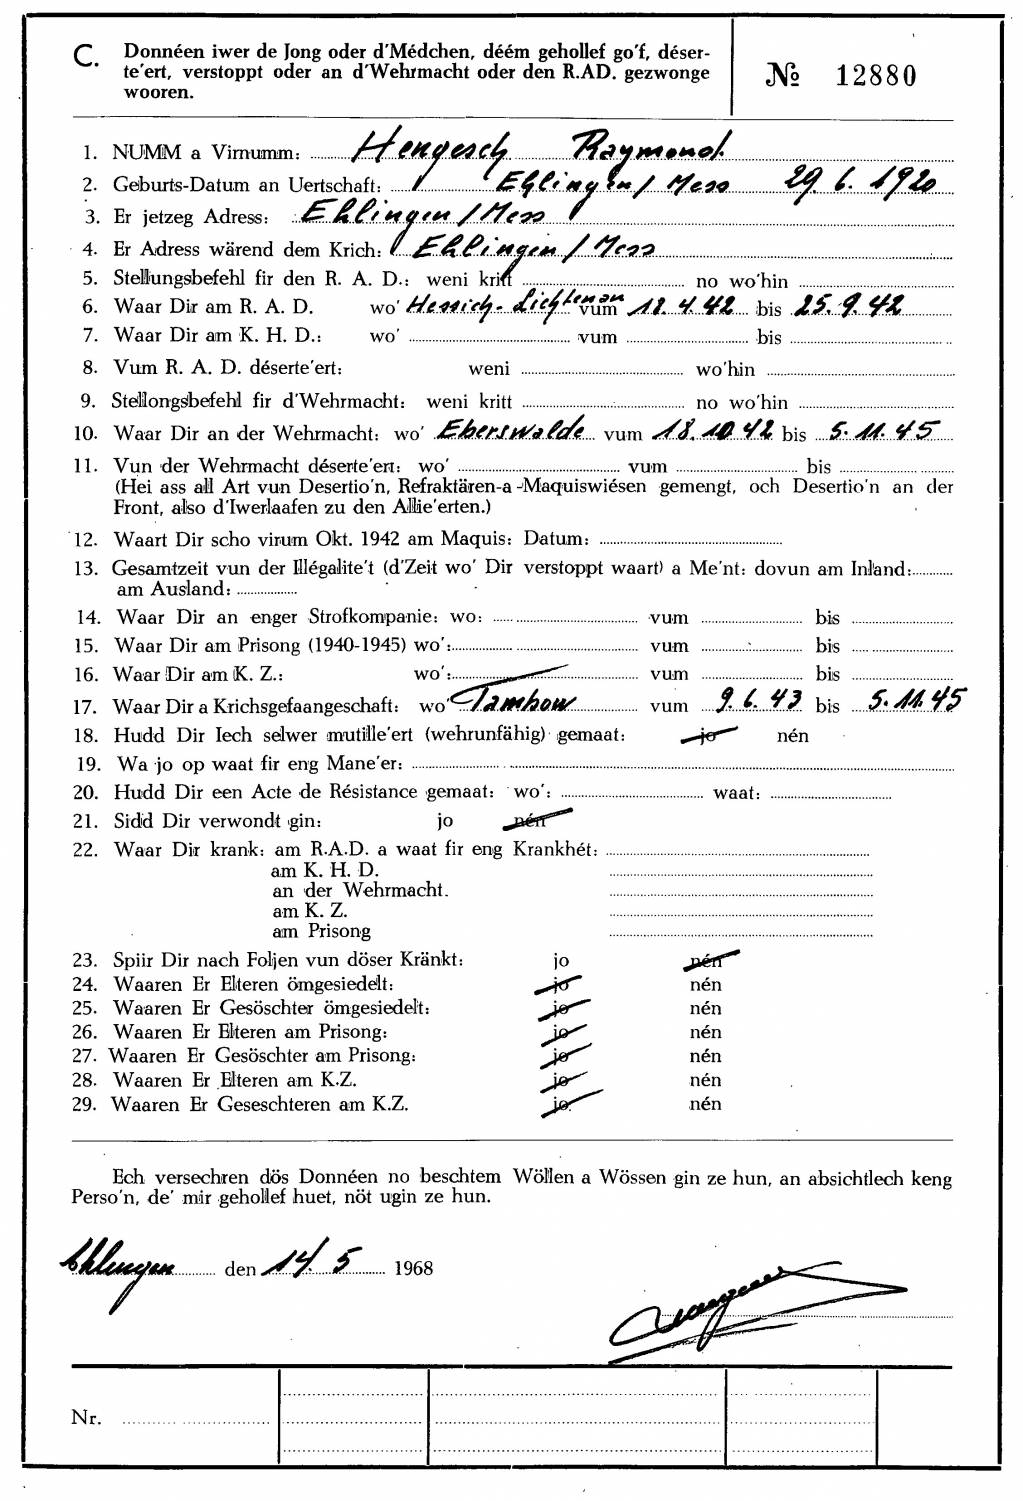 C. Donnéen iwer de Jong oder d'Médchen, déém gehollef go'f, déser-
te'ert, verstoppt oder an d'Wehrmacht oder den R.AD. gezwonge
wooren.
№ 12880
1. NUMM a Virnumm: Hengesch Raymond.
2. Geburts-Datum an Uertschaft: Ehlingen / Mess 29. 6. 1920
3. Er jetzeg Adress: Ehlingen / Mess
4. Er Adress wärend dem Krich: Ehlingen / Mess
5. Stellungsbefehl fir den R. A. D.: weni kritt no wo'hin
6. Waar Dir am R. A. D. wo' Hessich-Lichtenau vum 18. 4. 42 bis 25. 9. 42
7. Waar Dir am K. H. D.: wo' vum bis
8. Vum R. A. D. déserte'ert: weni wo'hin
9. Stellongsbefehl fir d'Wehrmacht: weni kritt no wo'hin
10. Waar Dir an der Wehrmacht: wo' Eberswalde vum 18. 10 42 bis 5. 11. 45
11. Vun der Wehrmacht déserte'ert: wo' vum bis
(Hei ass all Art vun Desertio'n, Refraktären-a -Maquiswiésen gemengt, och Desertio'n an der
Front, also d'Iwerlaafen zu den Allie'erten.)
12. Waart Dir scho virum Okt. 1942 am Maquis: Datum:
13. Gesamtzeit vun der Illégalite't (d'Zeit wo' Dir verstoppt waart) a Me'nt: dovun am Inland:
am Ausland:
14. Waar Dir an enger Strofkompanie: wo: vum bis
15. Waar Dir am Prisong (1940-1945) wo': vum bis
16. Waar Dir am K. Z.: wo': vum bis
17. Waar Dir a Krichsgefaangeschaft: wo' Tambow vum 9. 6. 43 bis 5. 11. 45
18. Hudd Dir Iech selwer mutille'ert (wehrunfähig) gemaat: jo nén
19. Wa jo op waat fir eng Mane'er:
20. Hudd Dir een Acte de Résistance gemaat: wo': waat:
21. Sidd Dir verwondt gin: jo nén
22. Waar Dir krank: am R.A.D. a waat fir eng Krankhét:
am K. H. D.
an der Wehrmacht.
am K. Z.
am Prisong
23. Spiir Dir nach Foljen vun döser Kränkt: jo nén
24. Waaren Er Elteren ömgesiedelt: jo nén
25. Waaren Er Gesöschter ömgesiedelt: jo nén
26. Waaren Er Elteren am Prisong: jo nén
27. Waaren Er Gesöschter am Prisong: jo nén
28. Waaren Er Elteren am K.Z. jo nén
29. Waaren Er Geseschteren am K.Z. jo. nén
Ech versechren dös Donnéen no beschtem Wöllen a Wössen gin ze hun, an absichtlech keng
Perso'n, de' mir gehollef huet, nöt ugin ze hun.
Ehlingen den 14. 5 1968
Nr.